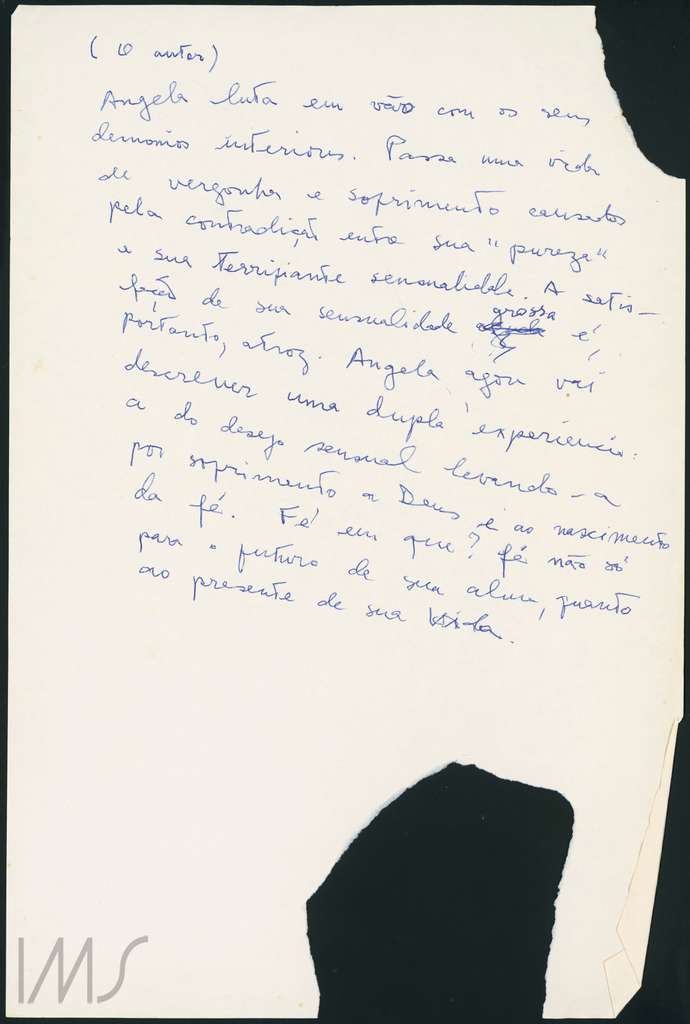 (O autor)
Angela luta em vão com os seus
demonios interiores. Passa uma vida
de vergonha e sofrimento causados
pela contradição entre sua "pureza"
e sua terrifiante sensualidade. A satis-
fação de sua sensualidade grossa é,
portanto, atroz. Angela agora vai
descrever uma dupla experiencia:
a do desejo sensual levando-a
por sofrimento a Deus e ao nascimento
da fé. Fé em que? fé não só
para o futuro de sua alma, quanto
ao presente de sua vida.
IMS